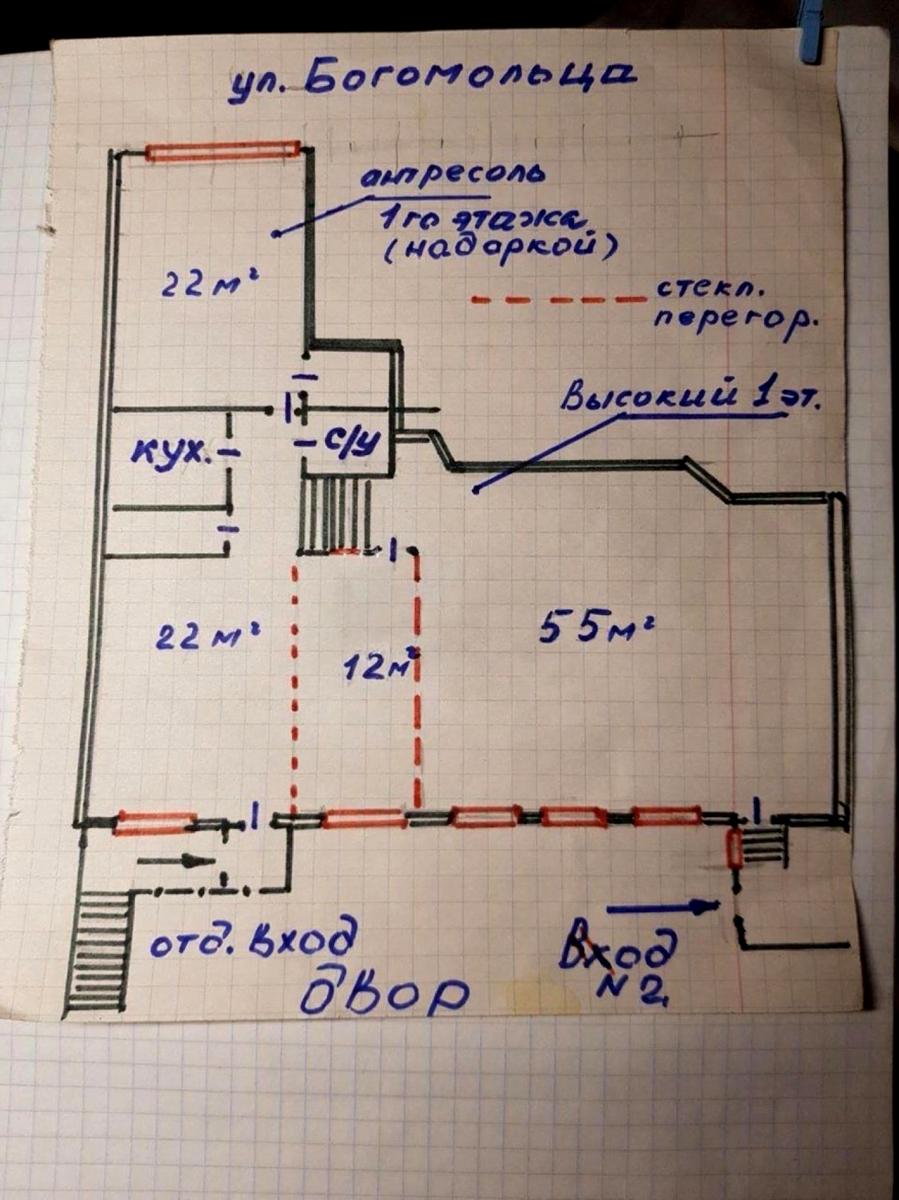 ул. Богомольца
антресоль
1го этажа
(над аркой)
22 м²
стекл.
перегор.
Высокий 1 эт.
кух.
с/у
22 м²
12м²
55м²
отд. вход
Вход
N 2,
двор